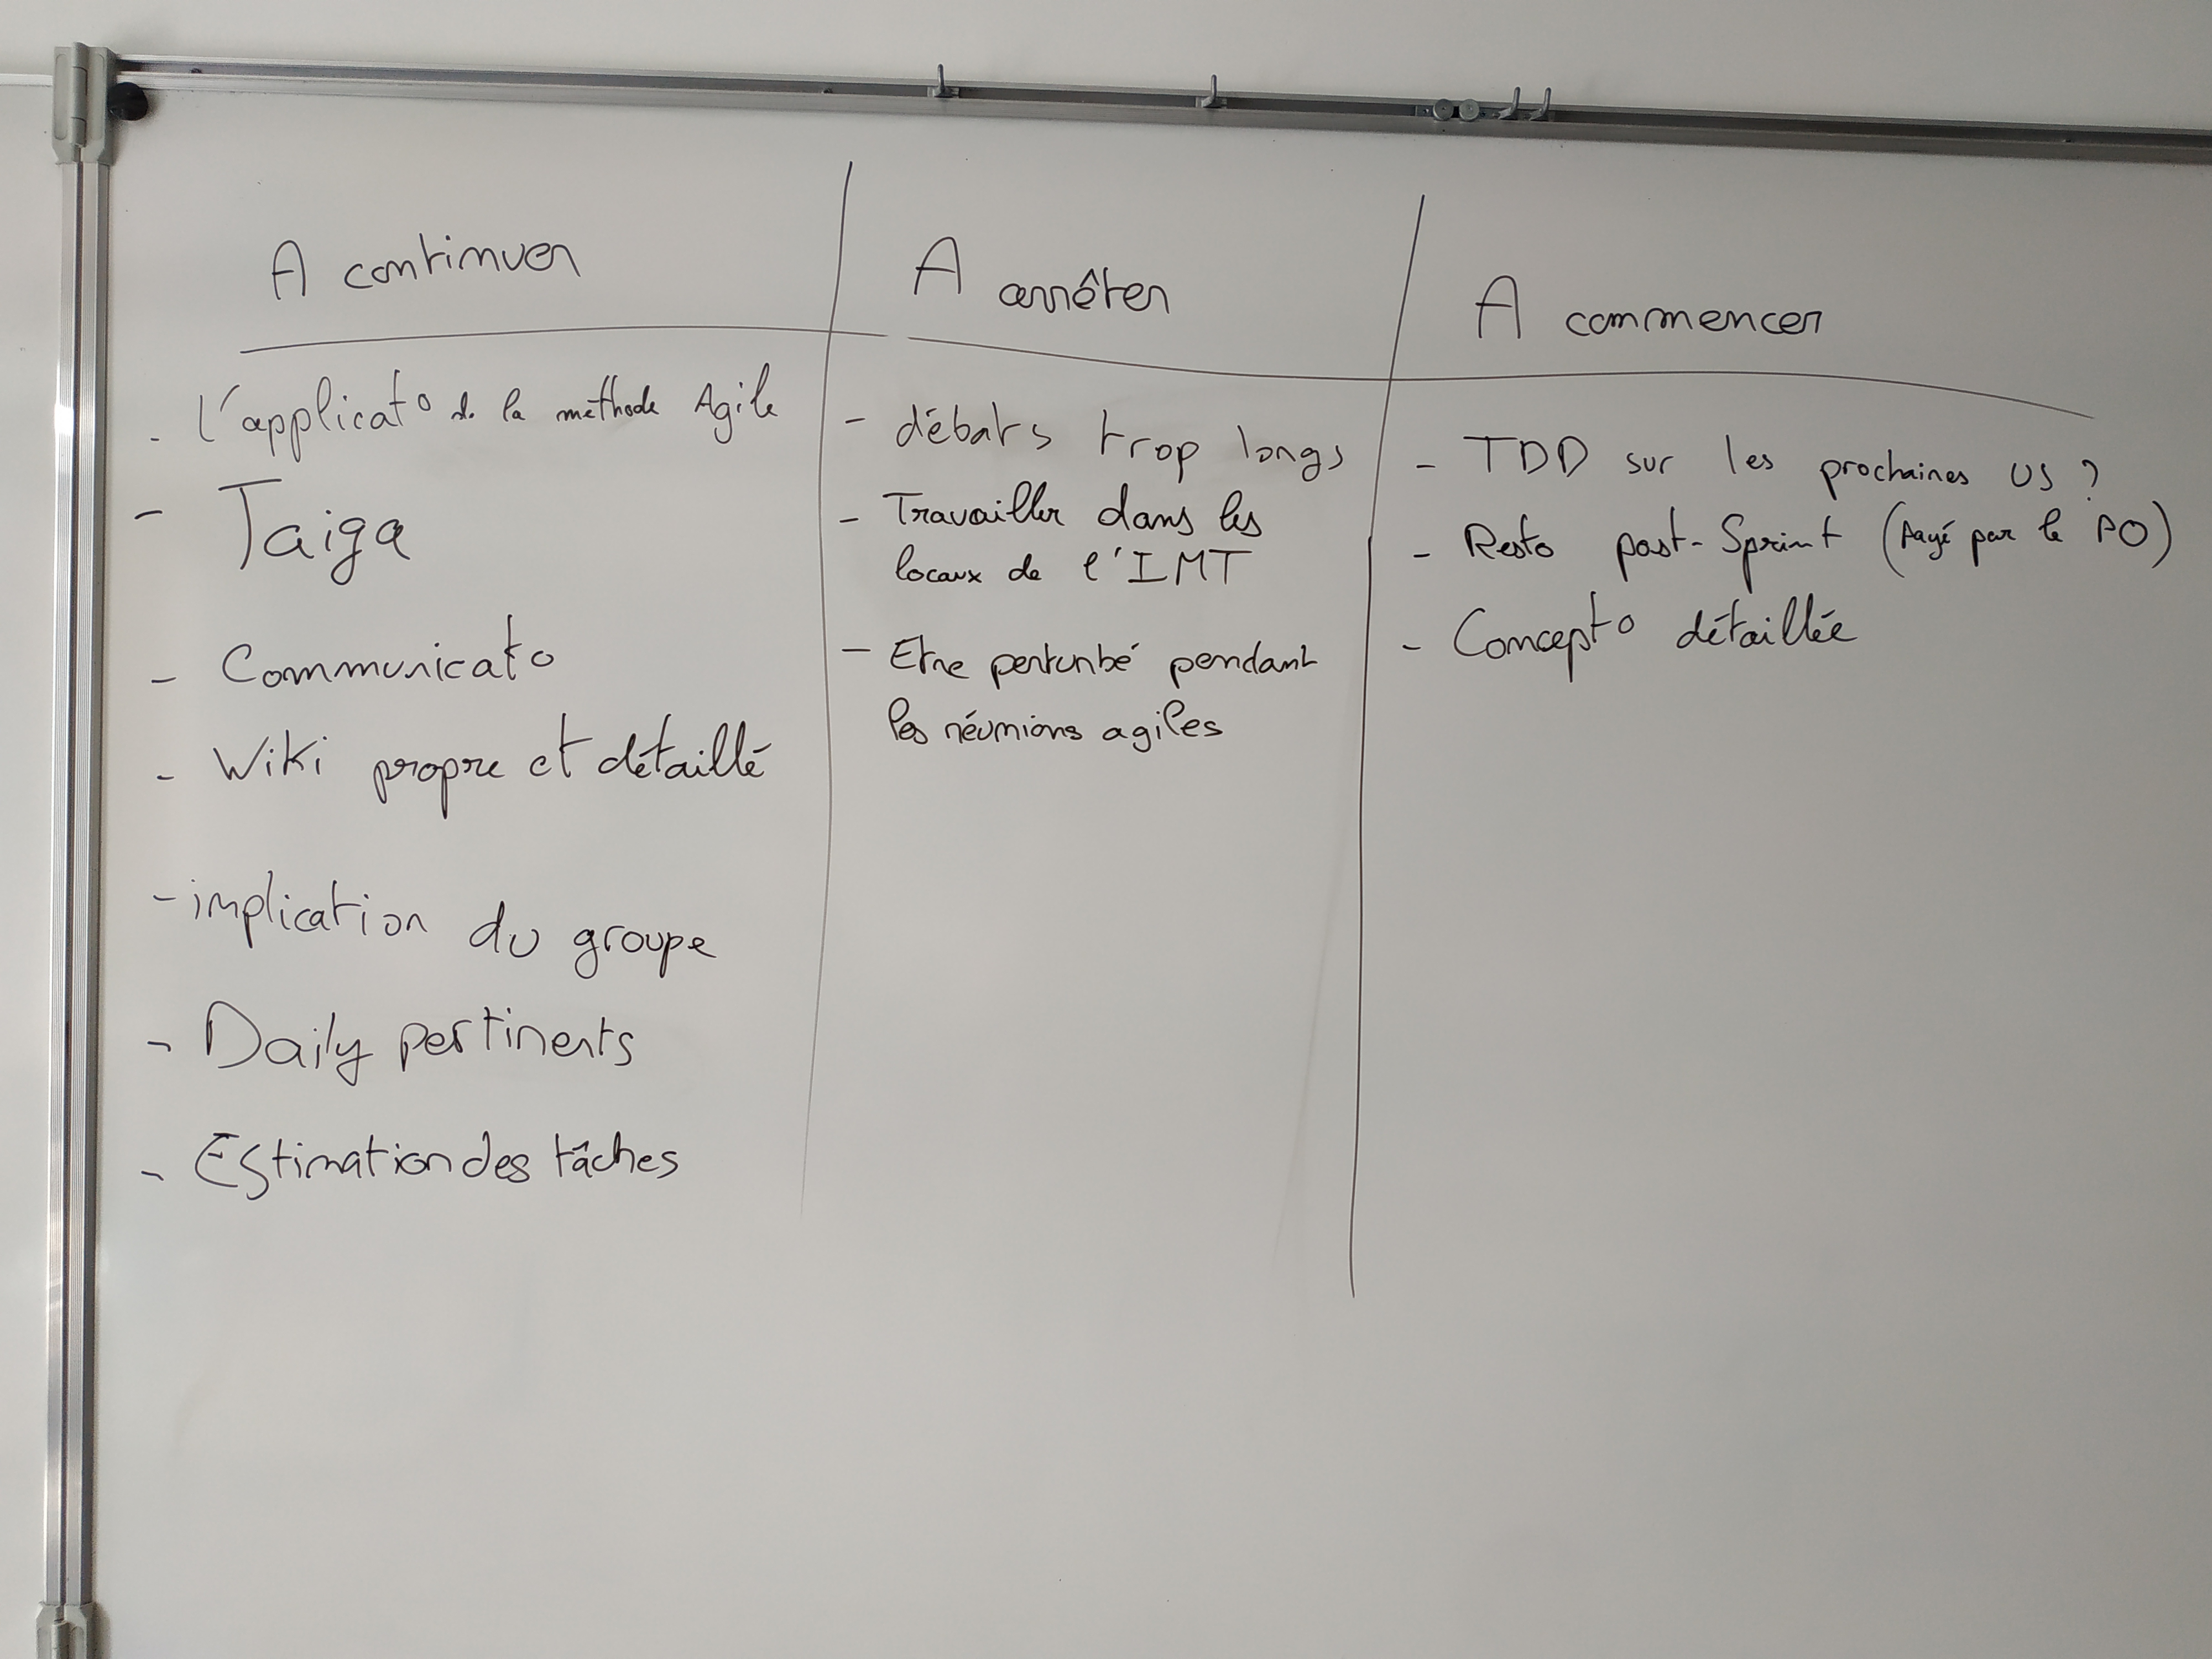 A continuer
- L'applicat° de la méthode Agile
- Taiga
- Communicat°
- Wiki propre et détaillé
- implication du groupe
- Daily pertinents
- Estimation des tâches
A arrêter
- débats trop longs
- Travailler dans les
locaux de l'IMT
- Etre perturbé pendant
les réunions agiles
A commencer
- TDD sur les prochaines US ?
- Resto post-Sprint (Payé par le PO)
- Concept° détaillée